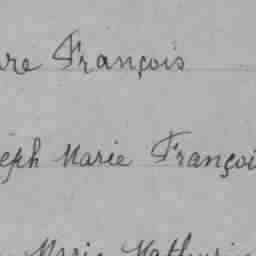 François
Marie Françoi
Marie Mathuri